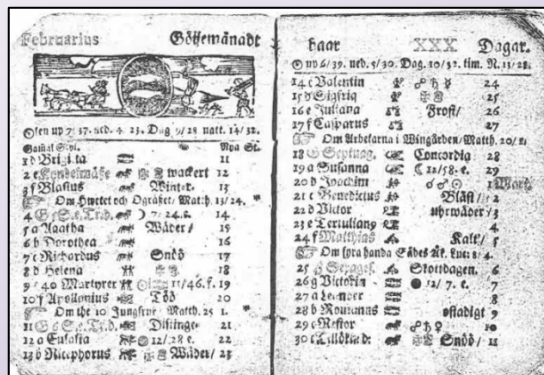 Februarius Göijemånadt
Solen up 7/37. ned. 4/23. Dag 9/28 natt. 14/32.
Gamal Styl. Nya St.
1 d Brigitta 11
2 e Kyndelmässe wackert 12
3 f Blasius Winter. 13
Om Hwetet och Ogräset/ Matth. 13/24.
4 G 5 S. e. Tr. d. 7/24. e. 14
5 a Agatha Wäder/ 15
6 b Dorothea 16
7 c Richardus Snöö 17
8 d Helena 18
9 e 40 Martyrer 11/46. f. 19
10 f Apollonius Töö 20
Om the 10 Jungfrur Matth. 25 1.
11 G 6 S. e. Tr. d. Distinge 21
12 a Eulalia 12/28. e 22
13 b Nicephorus Wäder/ 23
haar XXX Dagar.
up 6/39. ned. 5/30. Dag. 10/32. tim. N. 13/28.
14 c Valentin 24
15 d Sigfrid 25
16 e Juliana Frost/ 26
17 f Casparus 27
Om Arbetarna i Wingården/ Matth. 20/1
18 G Septuag. Concordia 28
19 a Susanna 12/58. e. 29
20 b Joachim 1 Mart.
21 c Benedictus Bläst/ 2
22 d Victor uhrwäder/ 3
23 e Tertulianus 4
24 f Matthias Kalt/ 5
Om fyra handa Sädes Åk. Luc: 8/ 4.
25 g Sexages. Skottdagen. 6
26 g Victorin 12/ 7. e. 7
27 a Leander 8
28 b Romanus ostadigt 9
29 c Nestor 10
30 c Snöö/ 11